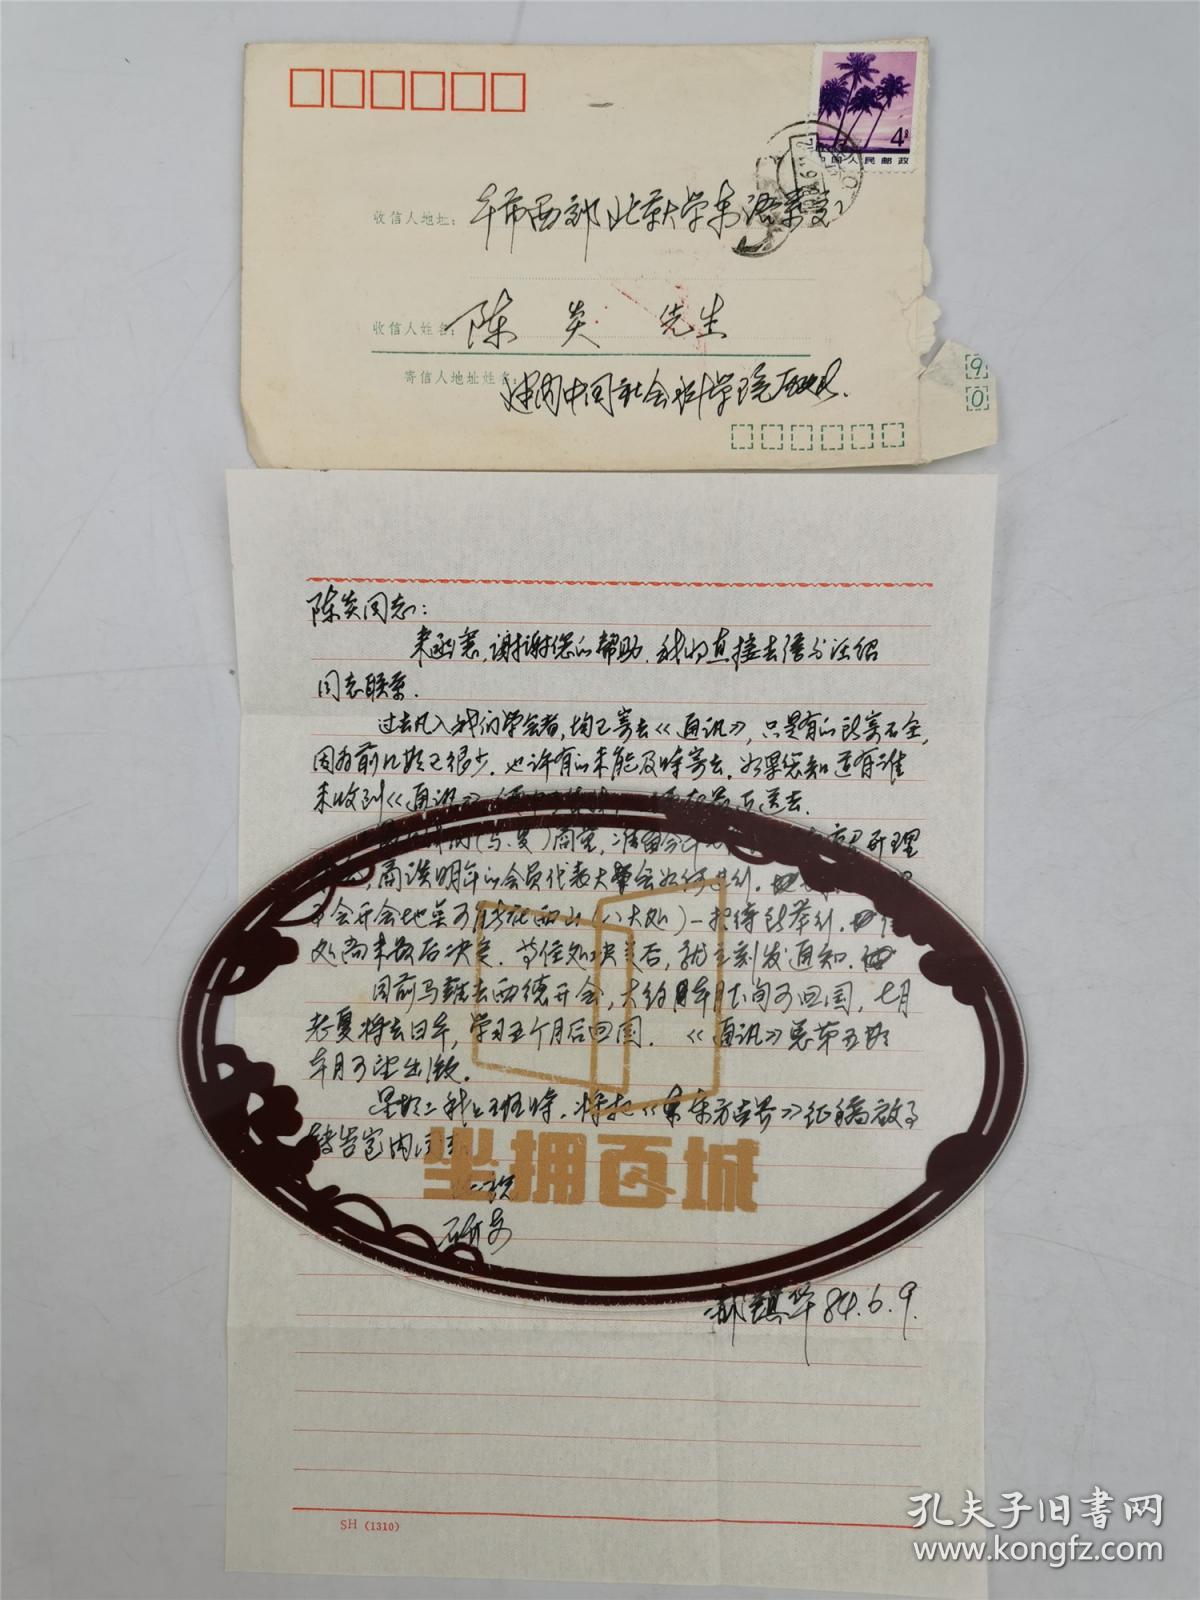 4分
中国人民邮政
收信人地址：
本市西郊北京大学东语系交
收信人姓名：
陈 炎 先生
寄信人地址姓名：
建内中国社会科学院历史所
9
0
陈炎同志：
来函悉，谢谢您的帮助，我们直接去信与汪绍
同志联系。
过去凡入我们学会者，均已寄去《通讯》，只是有的所寄不全，
因为前几期已很少，也许有的未能及时寄去，如果您知道有谁
未收到《通讯》
商量，准备今年
商谈明年的会员代表大会如何进行。
会开会地点可能在西山（八大处）一招待所举行。
处尚未最后决定，等住处决定后，就立刻发通知。
目前马 去西德开会，大约本月下旬可回国，七月
老夏将去日本，学习五个月后回国。《通讯》总第五期
本月可望出版。
星期二我上班时，将把《东方世界》征稿
转告室内同志
坐拥百城
研安
郝镇华 84.6.9.
SH (1310)
孔夫子旧书网
www.kongfz.com